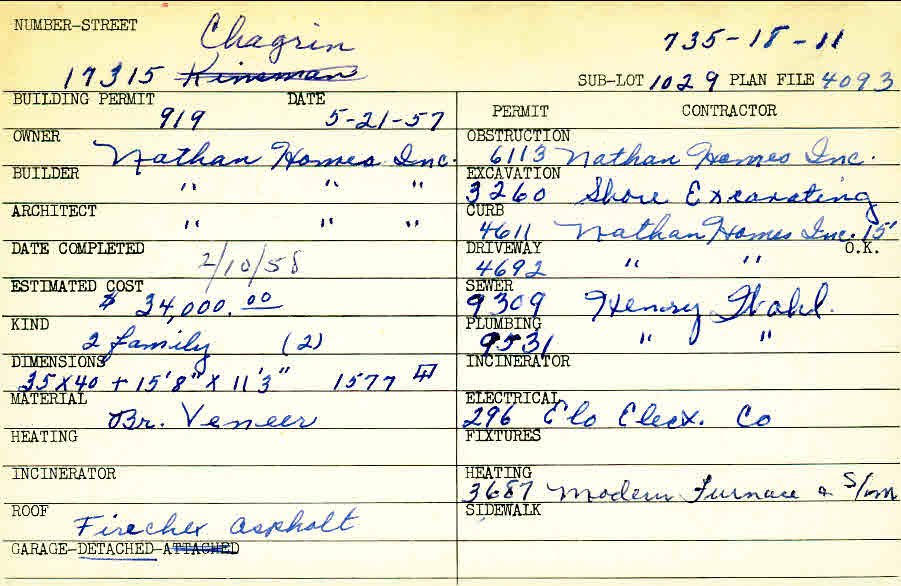 NUMBER-STREET
Chagrin
17315 Kinsman
735-18-11
SUB-LOT 1029 PLAN FILE 4093
BUILDING PERMIT DATE
919 5-21-57
OWNER
Nathan Homes Inc.
BUILDER
" " "
ARCHITECT
" " "
DATE COMPLETED
2/10/58
ESTIMATED COST
$ 34,000.00
KIND
2 family (2)
DIMENSIONS
35 X 40 + 15'8" X 11'3" 1577
MATERIAL
Br. Veneer
HEATING
INCINERATOR
ROOF
Firechex asphalt
GARAGE-DETACHED-ATTACHED
PERMIT CONTRACTOR
OBSTRUCTION
6113 Nathan Homes Inc.
EXCAVATION
3260 Shore Excavating
CURB
4611 Nathan Homes Inc. 15'
O.K.
DRIVEWAY
4692 " "
SEWER
9309 Henry Wahl.
PLUMBING
9531 " "
INCINERATOR
ELECTRICAL
296 Elo Elex. Co
FIXTURES
HEATING
3687 Modern Furnace & S/m
SIDEWALK